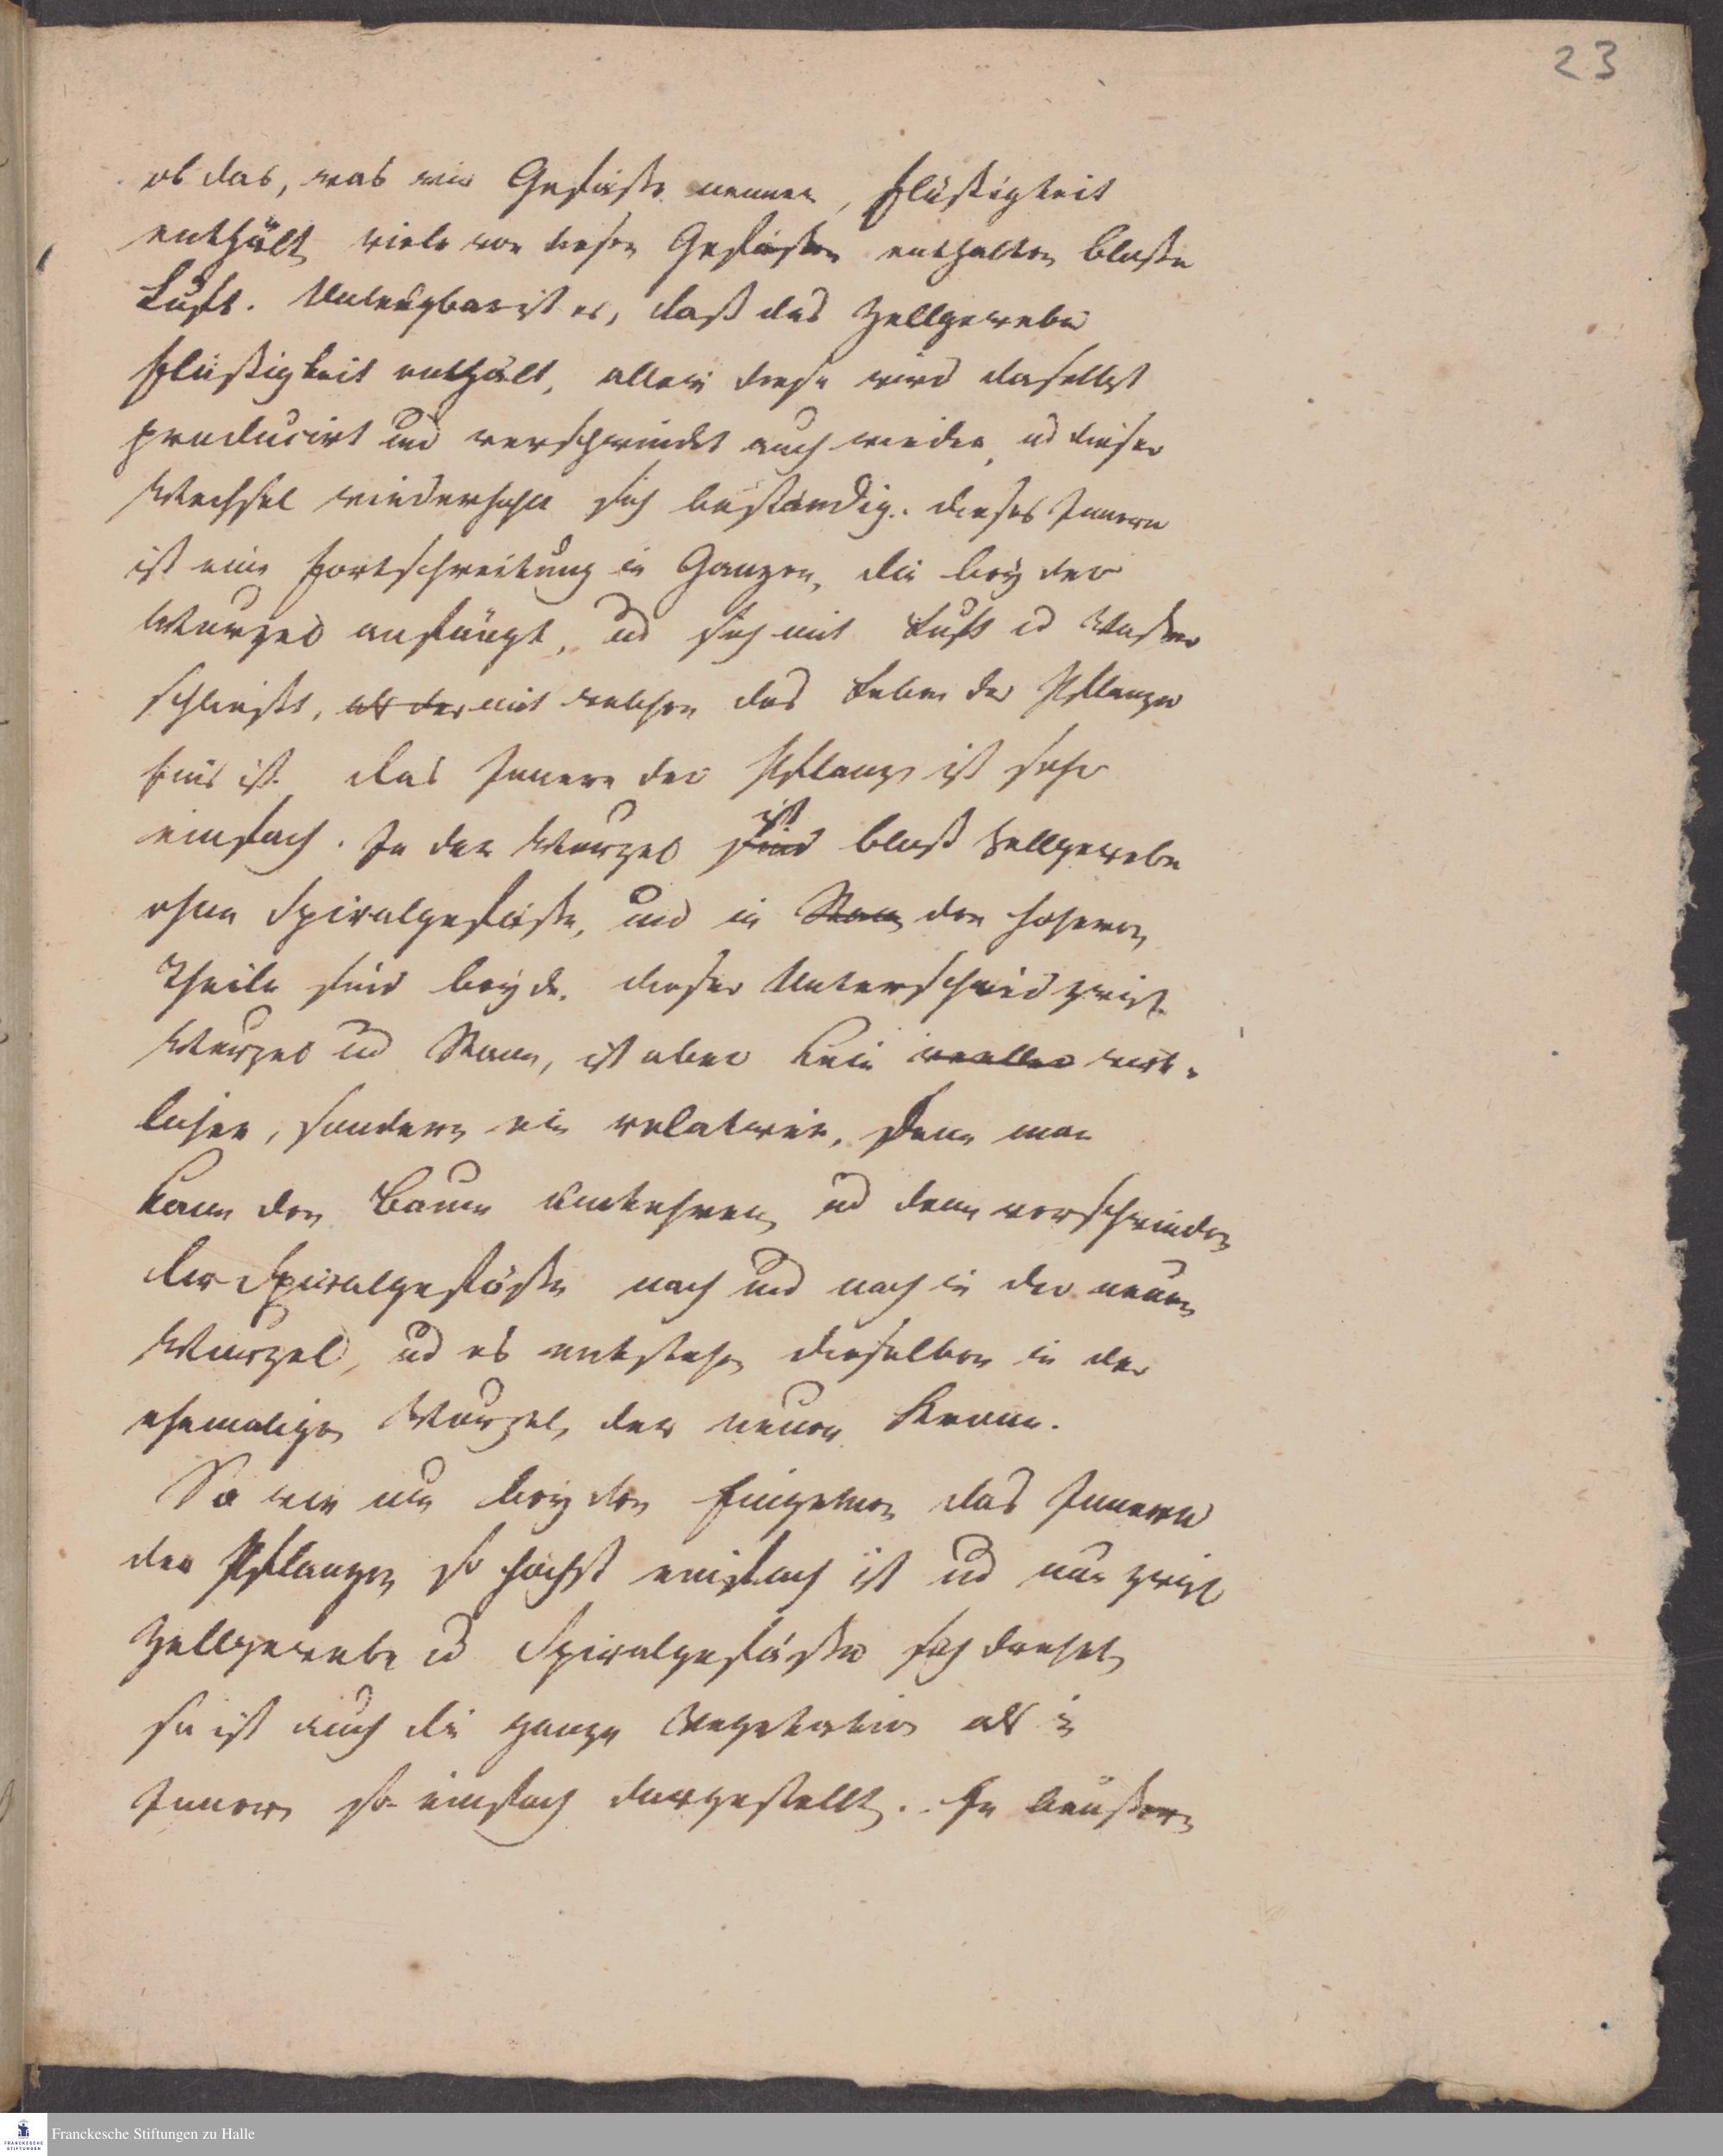 23
ob das, was wir Gefäße nennen, Flüßigkeit
enthält, viele von diesen Gefäßen enthalten bloße
Luft. Unleugbar ist es, daß das Zellgewebe
Flüßigkeit enthält, allein diese wird daselbst
producirt und verschwindet auch wieder, ud dieser
Wechsel wiederhohlt sich beständig. dieses Innere
ist eine Fortschreitung in Ganzen, die bey der
Wurzel anfängt, ud sich mit Luft ud Waßer
schließt, mit welchen das Leben der Pflanzen
Eins ist. Das Innere der Pflanze ist sehr
einfach. In der Wurzel sind ist bloß Zellgewebe
ohne Spiralgefäße, und in Stam den höhern
Theile sind beyde. dieser Unterschied zwisch.
Wurzel ud Stam, ist aber kein reeller
sondern ein relativer, denn man
kann den Baum umkehren, ud dann verschwinden
die Spiralgefäße nach und nach in der neuen
Wurzel, ud es entstehen dieselben in der
ehemaligen Wurzel, der neuen Krone.
So wie nun bey den Einzelnen das Innere
der Pflanzen so höchst einfach ist ud nur zwisch
Zellgewebe ud Spiralgefäße sich drehet,
so ist auch die ganze Vegetation als in
Innern so einfach dargestellt. In
Franckesche Stiftungen zu Halle
FRANCKESCHE
STIFTUNGEN